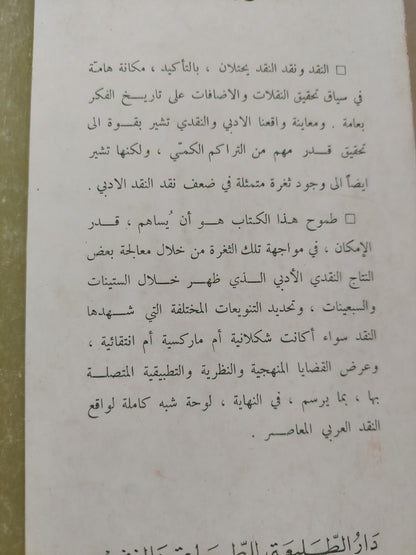 □ النقد ونقد النقد يحتلان ، بالتأكيد ، مكانة هامة
في سياق تحقيق النقلات والاضافات على تاريخ الفكر
بعامة . ومعاينة واقعنا الادبي والنقدي تشير بقوة الى
تحقيق قدر مهم من التراكم الكمّي ، ولكنها تشير
ايضاً الى وجود ثغرة متمثلة في ضعف نقد النقد الادبي .
□ طموح هذا الكتاب هو أن يُساهم ، قدر
الإمكان ، في مواجهة تلك الثغرة من خلال معالجة بعض
النتاج النقدي الأدبي الذي ظهر خلال الستينات
والسبعينات ، وتحديد التنويعات المختلفة التي شهدها
النقد سواء أكانت شكلانية أم ماركسية أم انتقائية ،
وعرض القضايا المنهجية والنظرية والتطبيقية المتصلة
بها ، بما يرسم ، في النهاية ، لوحة شبه كاملة لواقع
النقد العربي المعاصر .
دَارُ الطَّلِيعَة للطِّبَاعَة وَالنشر